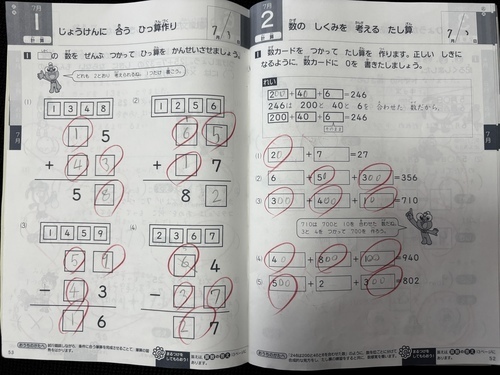 7月
1
計算
じょうけんに 合う ひっ算作り
7
1 の 数を ぜんぶ つかって ひっ算を かんせいさせましょう。
どれも 2とおり 考えられるね。1つだけ 書こう。
(1)
1 3 4 8
1 5
+ 4 3
5 8
(2)
1 2 5 6
6 5
+ 1 7
8 2
(3)
1 4 5 9
5 9
− 4 3
1 6
(4)
2 3 6 7
6 4
− 3 7
2 7
7月
おうちのかたへ
まるつけをしてもらおう!
52
7月
2
計算
数の しくみを 考える たし算
7
1 数カードを つかって たし算を 作ります。正しい しきに
なるように、数カードに 0を 書きたしましょう。
れい
200+40+6=246
246は 200と 40と 6を 合わせた 数だから、
200+40+6=246
(1) 20+7=27
(2) 6+50+300=356
(3) 300+400+10=710
710は 700と 10を 合わせた 数だね。
3と 4を つかって 700を 作ろう。
(4) 40+800+100=940
(5) 500+2+300=802
7月
おうちのかたへ
まるつけをしてもらおう!
52